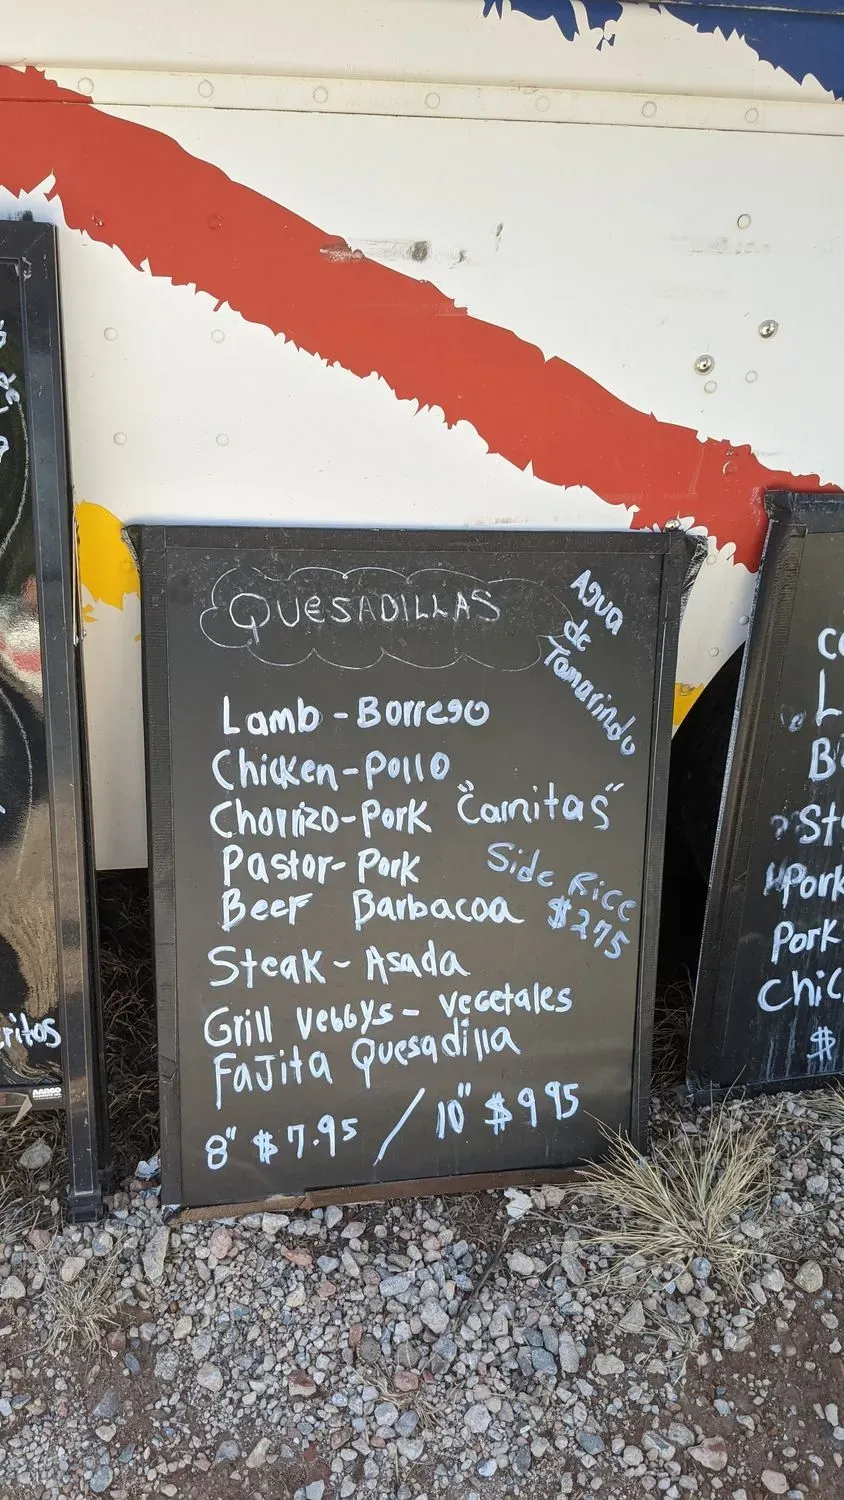 QUESADILLAS
AGUA
de
Tamarindo
Lamb - Borrego
Chicken - Pollo
Chorrizo - Pork "Carnitas"
Pastor - Pork
Side Rice
$2.75
Beef Barbacoa
Steak - Asada
Grill Veggys - vegetales
FaJita Quesadilla
8" $7.95 / 10" $9.95
ritos
Pork
Pork
$